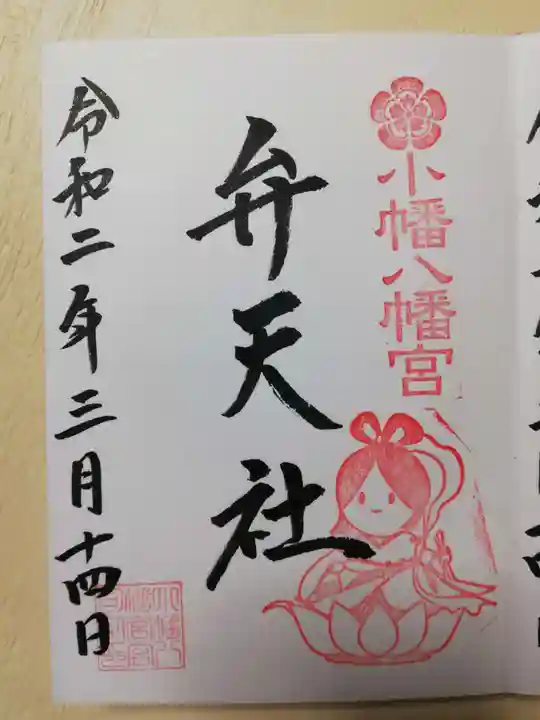 小幡八幡宮
弁天社
令和二年三月十四日